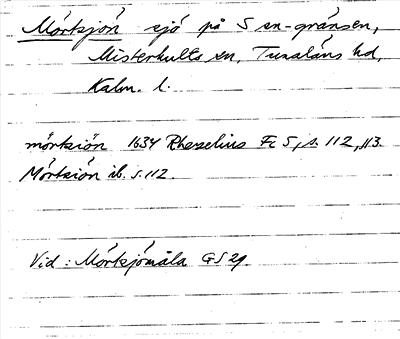 Mörksjön sjö på S sn-gränsen,
Misterhults sn, Tunaläns hd,
Kalm. l.
mörksiön 1634 Rhezelius Fc 5, s. 112, 113.
Mörksiön ib. s. 112.
Vid: Mörksjömåla GS 29.